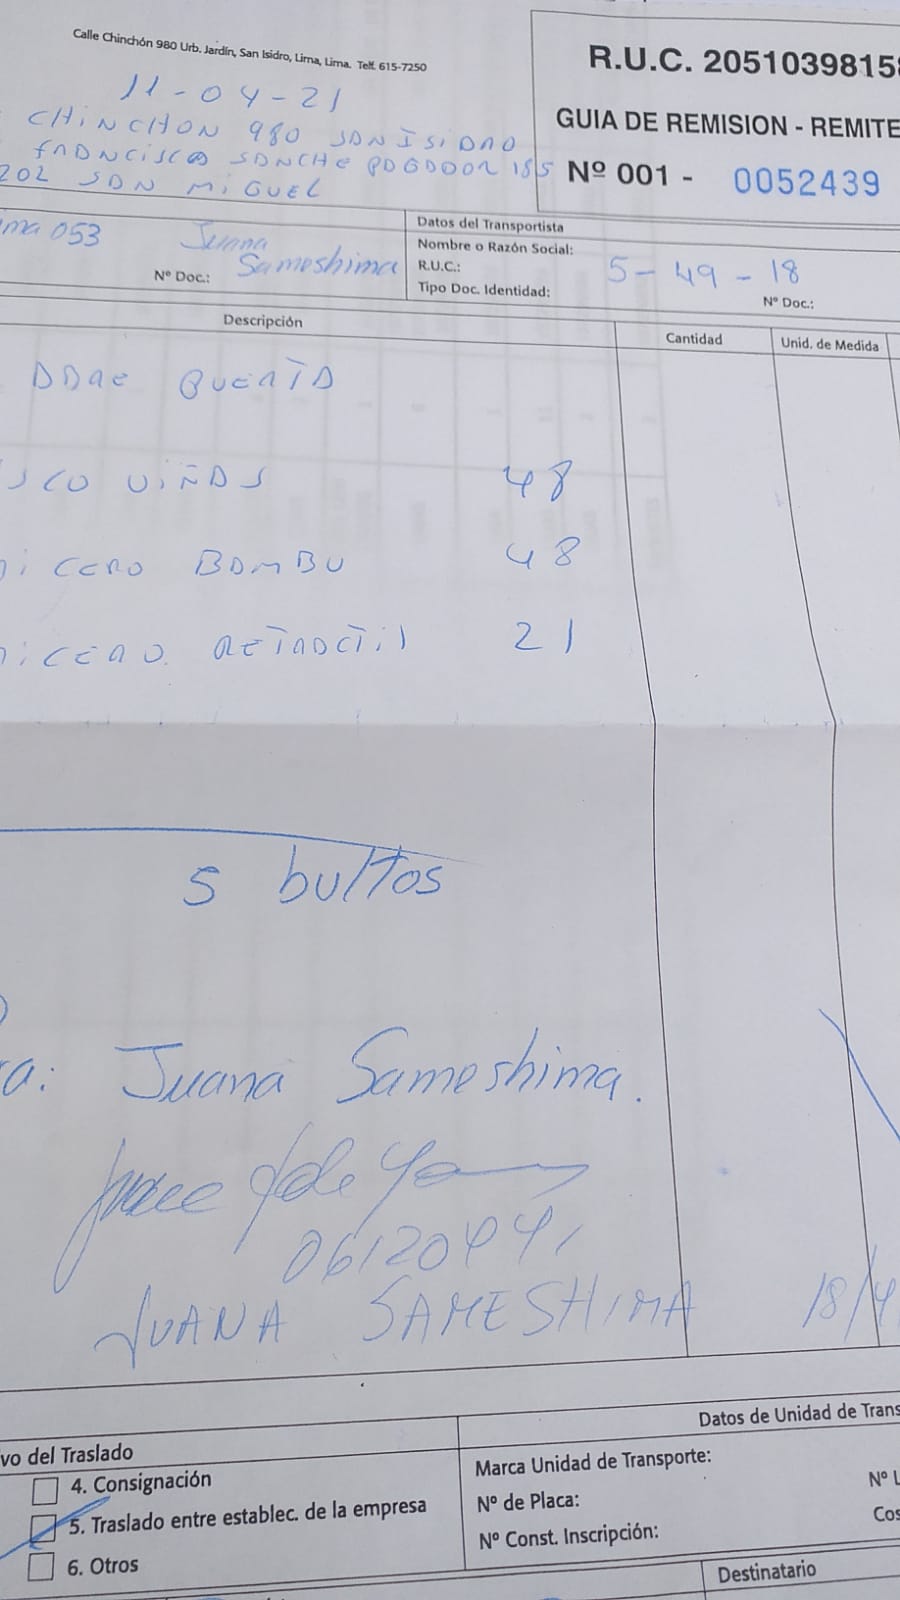 Calle Chinchón 980 Urb. Jardín, San Isidro, Lima, Lima. Telf. 615-7250
R.U.C. 2051039815
GUIA DE REMISION - REMITE
Nº 001 - 0052439
11-04-21
CHINCHON 980 SAN ISIDRO
FRANCISCO SANCHE PAGADOR 185
202 SAN MIGUEL
ma 053 Juana
Sameshima
Nº Doc.:
Datos del Transportista
Nombre o Razón Social:
R.U.C.: 5-49-18
Tipo Doc. Identidad: Nº Doc.:
Descripción Cantidad Unid. de Medida
ABRE PUERTA
SCO VIÑAS 48
CERO BAMBU 48
ICERO RETRACTIL 21
5 bultos
a: Juana Sameshima.
JUANA SAMESHIMA 18/4
vo del Traslado
4. Consignación
5. Traslado entre establec. de la empresa
6. Otros
Datos de Unidad de Trans
Marca Unidad de Transporte:
Nº de Placa: Nº L
Nº Const. Inscripción: Cos
Destinatario